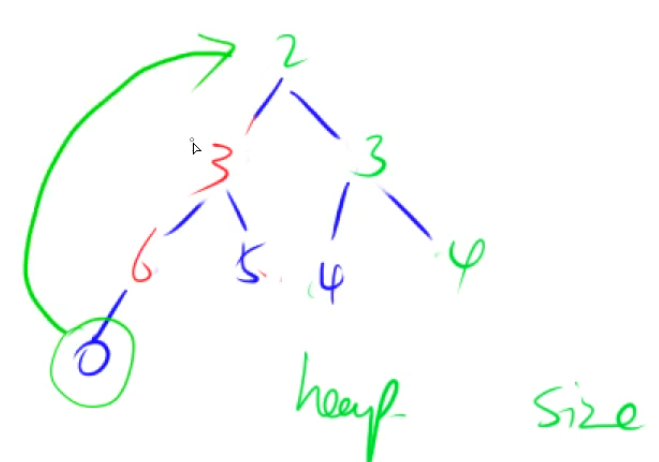 2
3 3
6 5 4 4
0
heap size